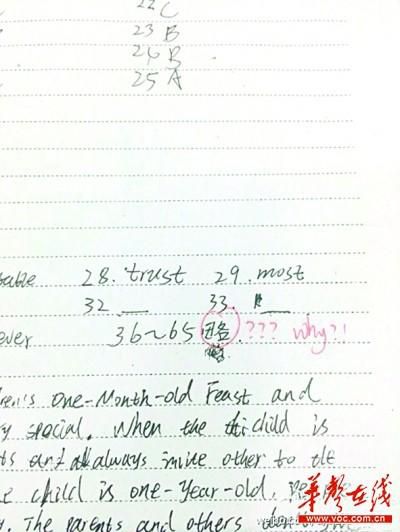 22 C
23 B
24 B
25 A
28. trust 29. most
32. __ 33. __
ever 36~65 略 ??? why?!
ren's One-Month-old Feast and
special. When the child is
and always invite other to the
child is one-year-old,
. The parents and others
华声在线
www.voc.com.cn